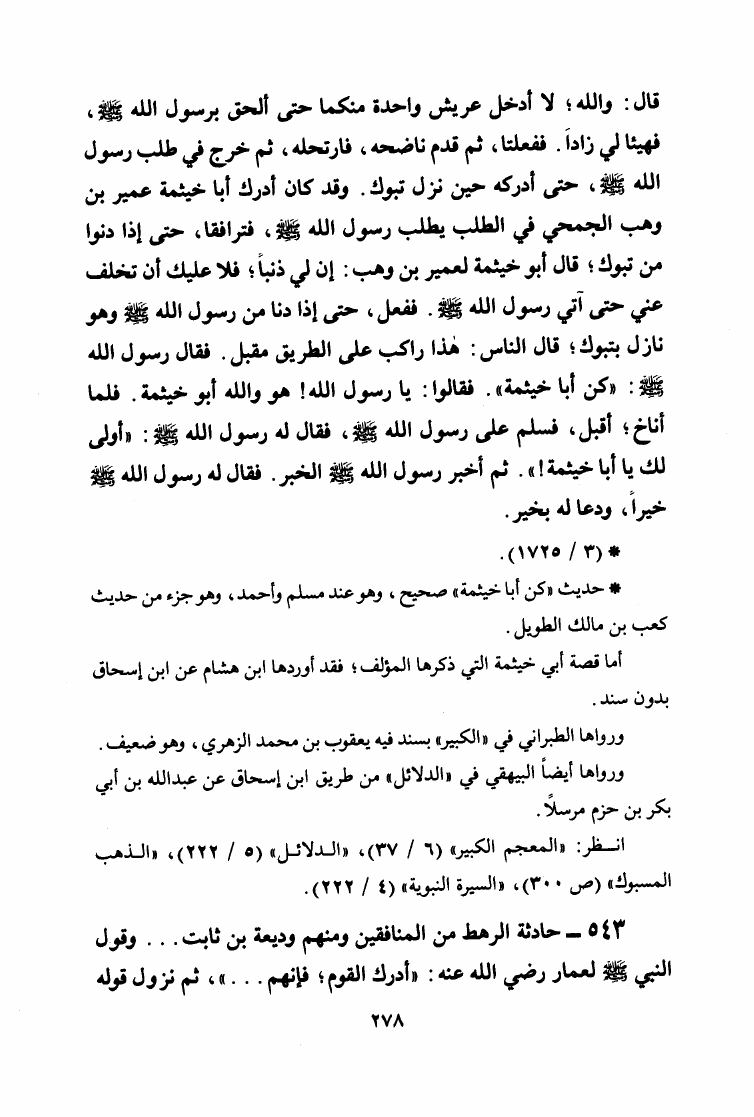 قال: والله؛ لا أدخل عريش واحدة منكما حتى ألحق برسول الله ﷺ،
فهيئا لي زاداً. ففعلتا، ثم قدم ناضحه، فارتحله، ثم خرج في طلب رسول
الله ﷺ، حتى أدركه حين نزل تبوك. وقد كان أدرك أبا خيثمة عمير بن
وهب الجمحي في الطلب يطلب رسول الله ﷺ، فترافقا، حتى إذا دنوا
من تبوك؛ قال أبو خيثمة لعمير بن وهب: إن لي ذنباً؛ فلا عليك أن تخلف
عني حتى آتي رسول الله ﷺ. ففعل، حتى إذا دنا من رسول الله ﷺ وهو
نازل بتبوك؛ قال الناس: هٰذا راكب على الطريق مقبل. فقال رسول الله
ﷺ: «كن أبا خيثمة». فقالوا: يا رسول الله! هو والله أبو خيثمة. فلما
أناخ؛ أقبل، فسلم على رسول الله ﷺ، فقال له رسول الله ﷺ: «أولى
لك يا أبا خيثمة!». ثم أخبر رسول الله ﷺ الخبر. فقال له رسول الله ﷺ
خيراً، ودعا له بخير.
* (٣ / ١٧٢٥).
* حديث «كن أبا خيثمة» صحيح، وهو عند مسلم وأحمد، وهو جزء من حديث
كعب بن مالك الطويل.
أما قصة أبي خيثمة التي ذكرها المؤلف؛ فقد أوردها ابن هشام عن ابن إسحاق
بدون سند.
ورواها الطبراني في «الكبير» بسند فيه يعقوب بن محمد الزهري، وهو ضعيف.
ورواها أيضاً البيهقي في «الدلائل» من طريق ابن إسحاق عن عبدالله بن أبي
بكر بن حزم مرسلاً.
انـظر: «المعجم الكبير» (٦ / ٣٧)، «الـدلائـل» (٥ / ٢٢٢)، «الـذهب
المسبوك» (ص ٣٠٠)، «السيرة النبوية» (٤ / ٢٢٢).
٥٤٣ ـ حادثة الرهط من المنافقين ومنهم وديعة بن ثابت... وقول
النبي ﷺ لعمار رضي الله عنه: «أدرك القوم؛ فإنهم...»، ثم نزول قوله
٢٧٨